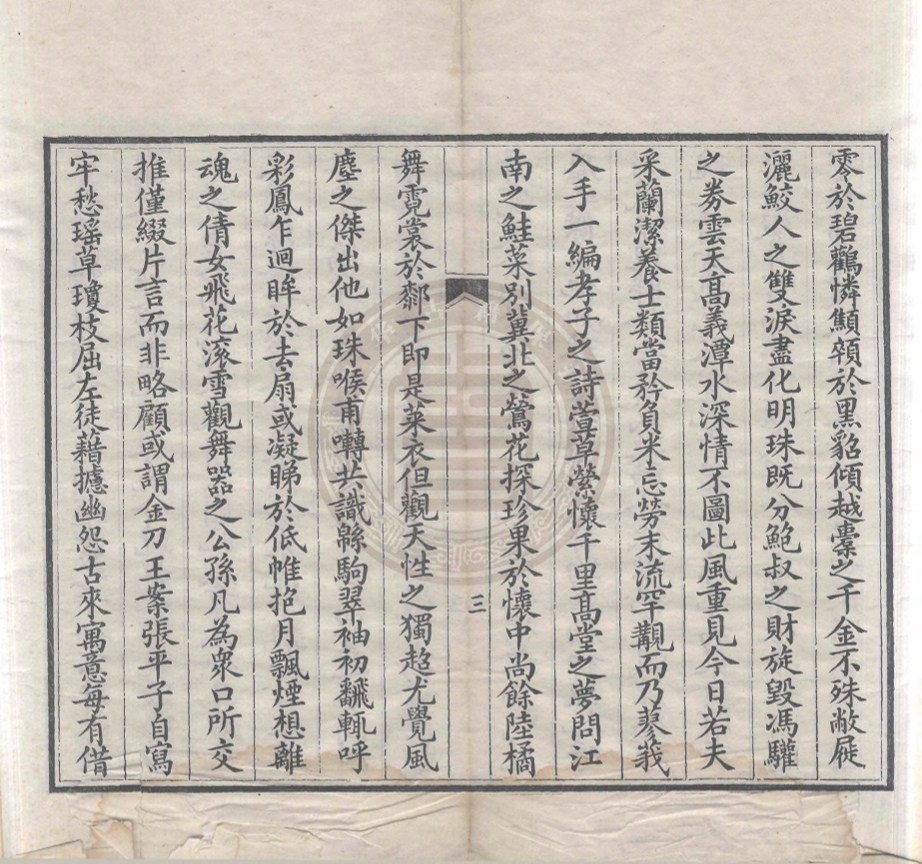 零於碧鸛憐顦顇於黒貂傾越橐之千金不殊敝屣
灑鮫人之雙淚盡化明珠既分鮑叔之財旋毀馮驩
之券雲天高義潭水深情不圖此風重見今日若夫
采蘭潔養士類當矜負米忘勞末流罕覯而乃蓼莪
入手一編孝子之詩萱草縈懷千里高堂之夢問江
南之鮭菜別冀北之鶯花探珍果於懷中尚餘陸橘
三
舞霓裳於鄰下即是萊衣但觀天性之獨超尤覺風
塵之傑出他如珠喉甫囀共識緜駒翠袖初飜輒呼
彩鳳乍迴眸於去扇或凝睇於低帷抱月飄煙想離
魂之倩女飛花滾雪觀舞器之公孫凡為衆口所交
推僅綴片言而非略顧或謂金刀玉案張平子自寫
牢愁瑶草瓊枝屈左徒藉攄幽怨古來寓意每有借